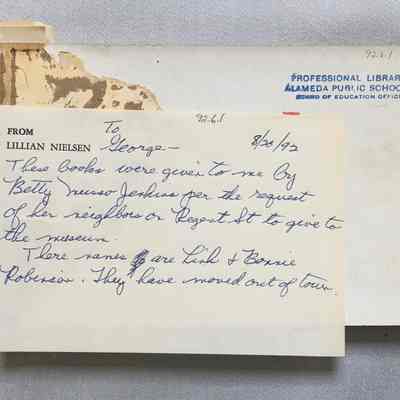 92.6.1
PROFESSIONAL LIBRAR
ALAMEDA PUBLIC SCHOO
BOARD OF EDUCATION OFFIC
92.6.1
FROM
LILLIAN NIELSEN
To
George—
8/20/92
These books were given to me by
Betty Musso Jenkins per the request
of her neighbors on Regent St to give to
the museum.
There names are Link & Bonnie
Robinson. They have moved out of town.